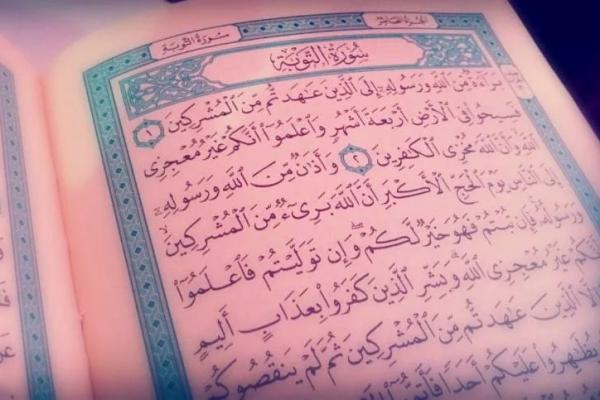 سورة التوبة
الجزء العاشر
سُورَةُ التَّوْبَةِ
بَرَآءَةٌ مِّنَ ٱللَّهِ وَرَسُولِهِۦٓ إِلَى ٱلَّذِينَ عَٰهَدتُّم مِّنَ ٱلْمُشْرِكِينَ ١
فَسِيحُوا۟ فِى ٱلْأَرْضِ أَرْبَعَةَ أَشْهُرٍ وَٱعْلَمُوٓا۟ أَنَّكُمْ غَيْرُ مُعْجِزِى
ٱللَّهِ وَأَنَّ ٱللَّهَ مُخْزِى ٱلْكَٰفِرِينَ ٢ وَأَذَٰنٌ مِّنَ ٱللَّهِ وَرَسُولِهِۦٓ
إِلَى ٱلنَّاسِ يَوْمَ ٱلْحَجِّ ٱلْأَكْبَرِ أَنَّ ٱللَّهَ بَرِىٓءٌ مِّنَ ٱلْمُشْرِكِينَ
وَرَسُولُهُۥ فَإِن تُبْتُمْ فَهُوَ خَيْرٌ لَّكُمْ ۖ وَإِن تَوَلَّيْتُمْ فَٱعْلَمُوٓا۟
أَنَّكُمْ غَيْرُ مُعْجِزِى ٱللَّهِ ۗ وَبَشِّرِ ٱلَّذِينَ كَفَرُوا۟ بِعَذَابٍ أَلِيمٍ
إِلَّا ٱلَّذِينَ عَٰهَدتُّم مِّنَ ٱلْمُشْرِكِينَ ثُمَّ لَمْ يَنقُصُوكُمْ
يُظَٰهِرُوا۟ عَلَيْكُمْ أَحَدًا فَأَتِمُّوٓا۟